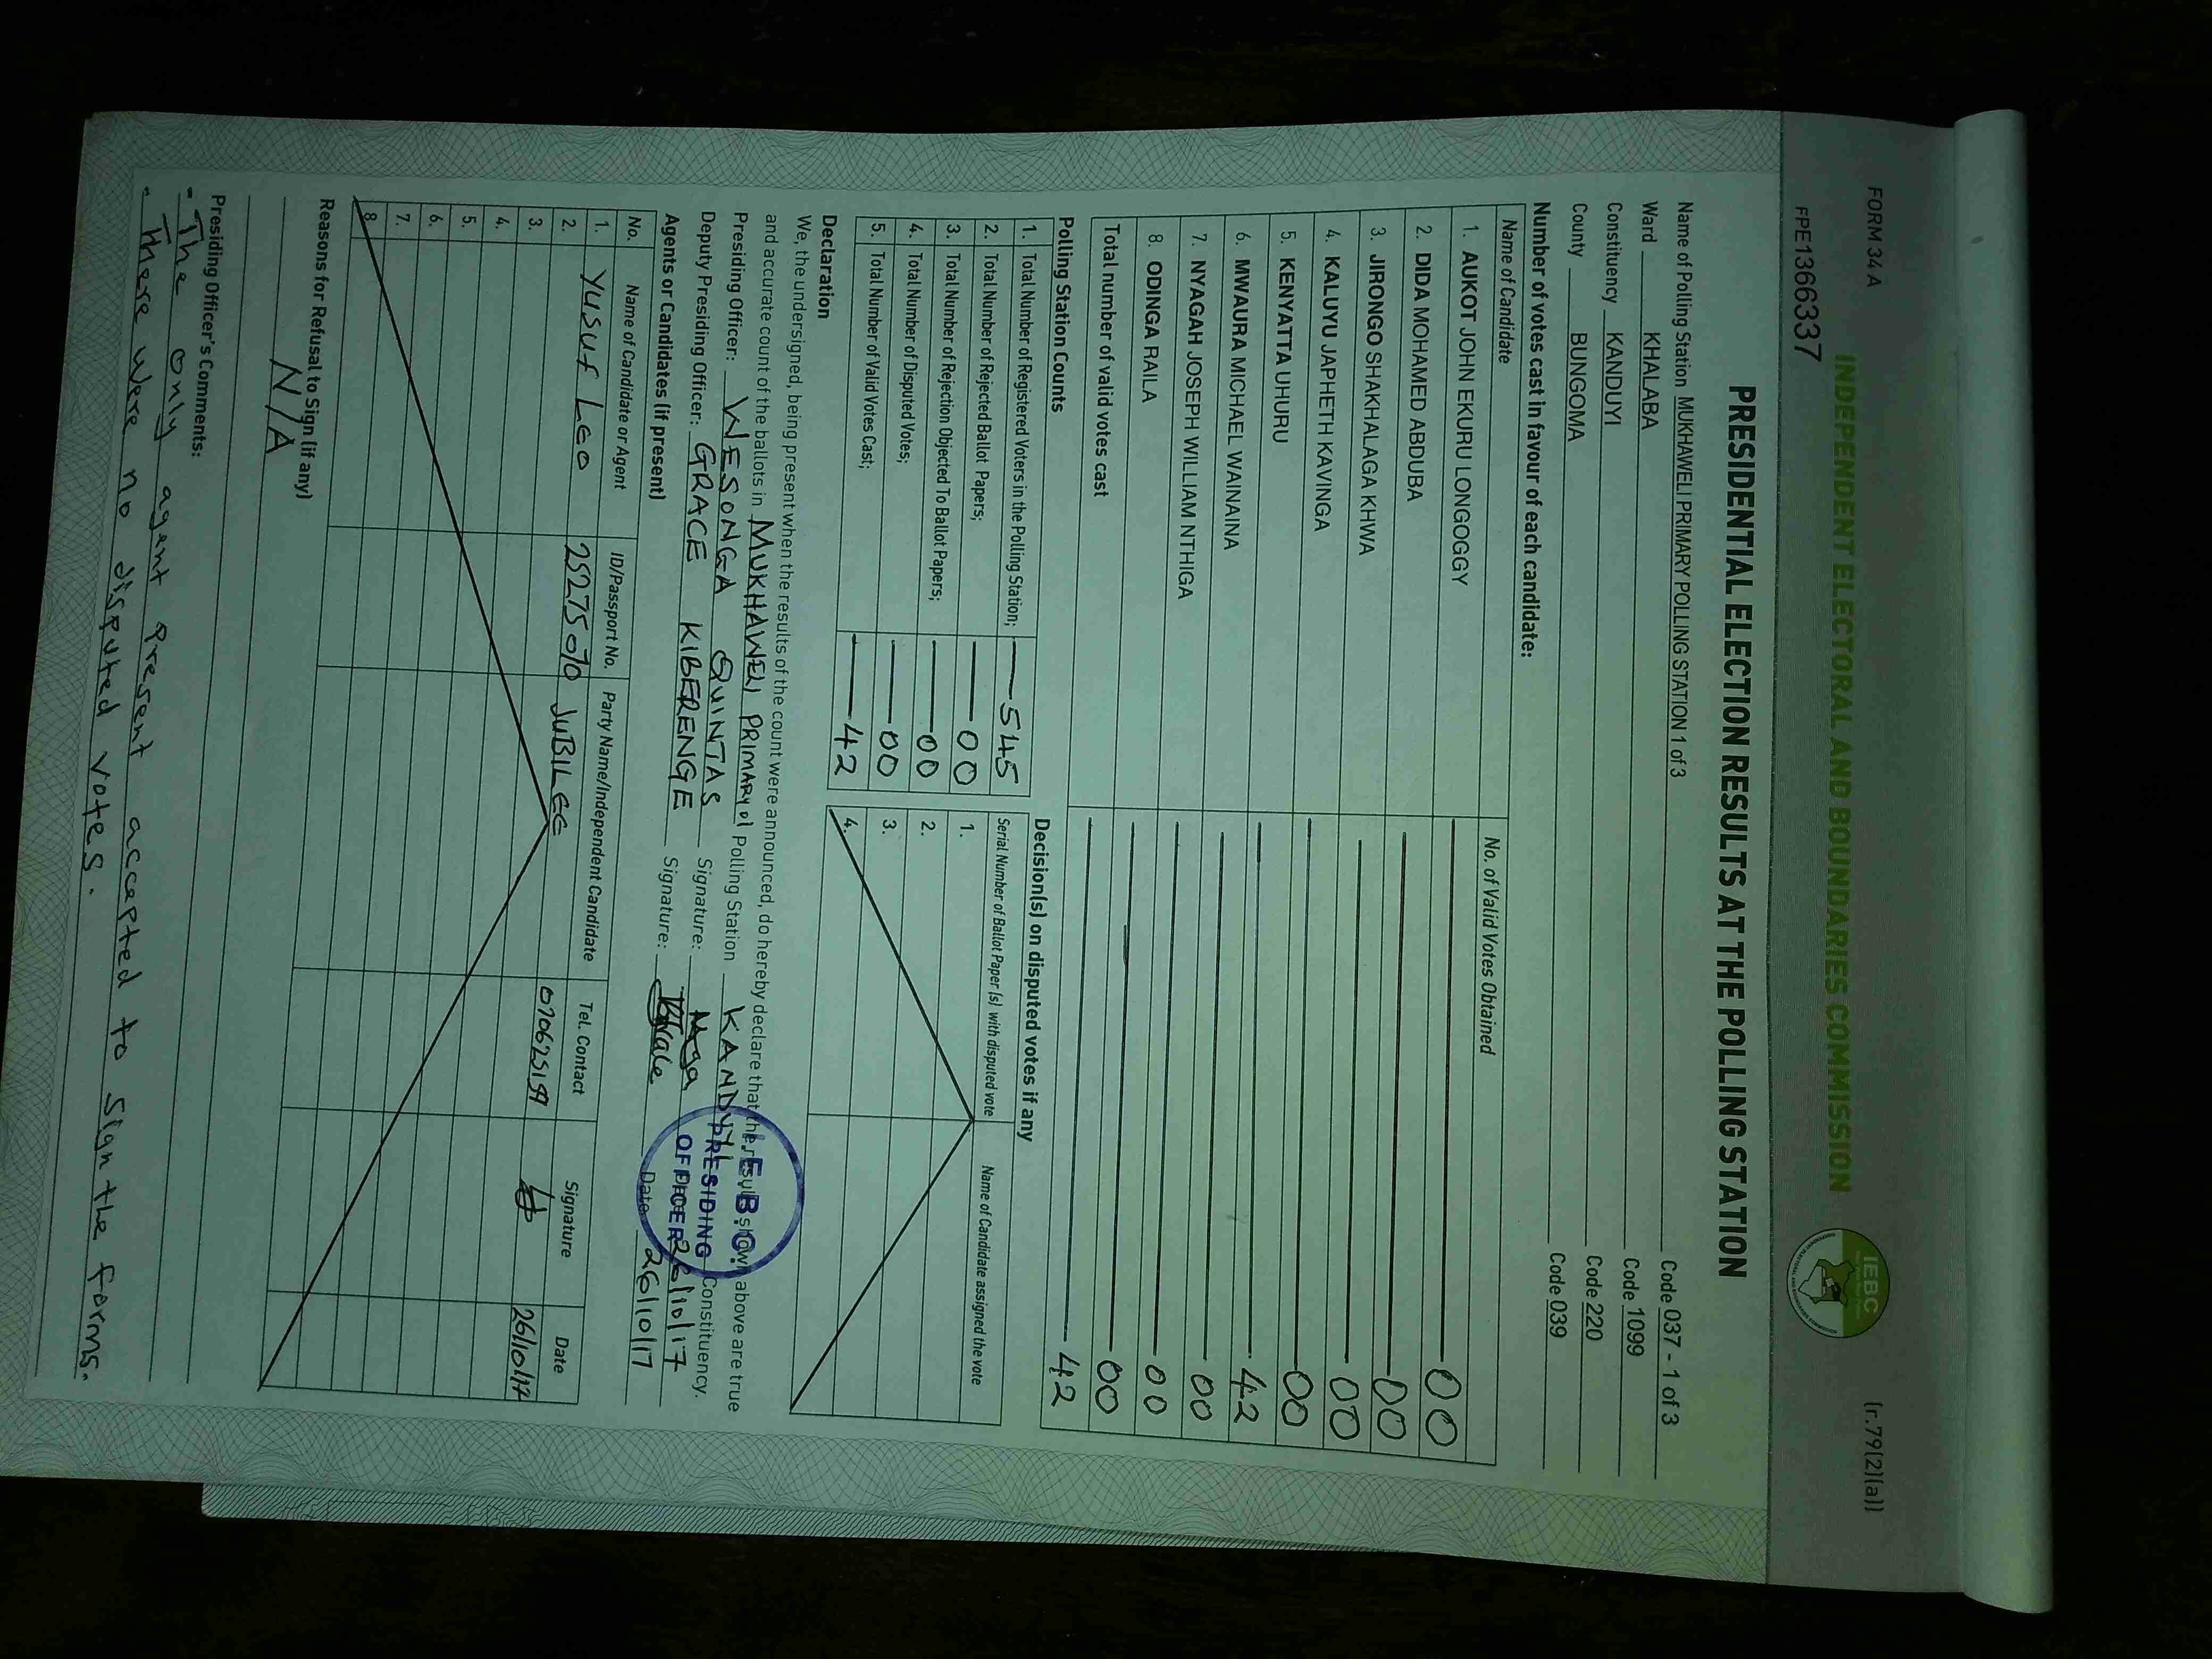 FORM 34 A (r.79(2)(a))
INDEPENDENT ELECTORAL AND BOUNDARIES COMMISSION
IEBC
FPE1366337
PRESIDENTIAL ELECTION RESULTS AT THE POLLING STATION
Name of Polling Station MUKHAWELI PRIMARY POLLING STATION 1 of 3 Code 037 - 1 of 3
Ward KHALABA Code 1099
Constituency KANDUYI Code 220
County BUNGOMA Code 039
Number of votes cast in favour of each candidate:
Name of Candidate No. of Valid Votes Obtained
1. AUKOT JOHN EKURU LONGOGGY 00
2. DIDA MOHAMED ABDUBA 00
3. JIRONGO SHAKHALAGA KHWA 00
4. KALUYU JAPHETH KAVINGA 00
5. KENYATTA UHURU 42
6. MWAURA MICHAEL WAINAINA 00
7. NYAGAH JOSEPH WILLIAM NTHIGA 00
8. ODINGA RAILA 00
Total number of valid votes cast 42
Polling Station Counts
1. Total Number of Registered Voters in the Polling Station; 545
2. Total Number of Rejected Ballot Papers; 00
3. Total Number of Rejection Objected To Ballot Papers; 00
4. Total Number of Disputed Votes; 00
5. Total Number of Valid Votes Cast; 42
Decision(s) on disputed votes if any
Serial Number of Ballot Paper (s) with disputed vote Name of Candidate assigned the vote
1.
2.
3.
4.
Declaration
We, the undersigned, being present when the results of the count were announced, do hereby declare that the results shown above are true
and accurate count of the ballots in MUKHAWELI PRIMARY 01 Polling Station KANDUYI Constituency.
Presiding Officer: WESONGA QUINTAS Signature: Date 26/10/17
Deputy Presiding Officer: GRACE KIBERENGE Signature: Date 26/10/17
I.E.B.C
PRESIDING
OFFICER
Agents or Candidates (if present)
No. Name of Candidate or Agent ID/Passport No. Party Name/Independent Candidate Tel. Contact Signature Date
1. YUSUF LEO 25275070 JUBILEE 26/10/17
2.
3.
4.
5.
6.
7.
8.
Reasons for Refusal to Sign (if any)
N/A
Presiding Officer's Comments:
- The only agent present accepted to sign the forms.
- There were no disputed votes.